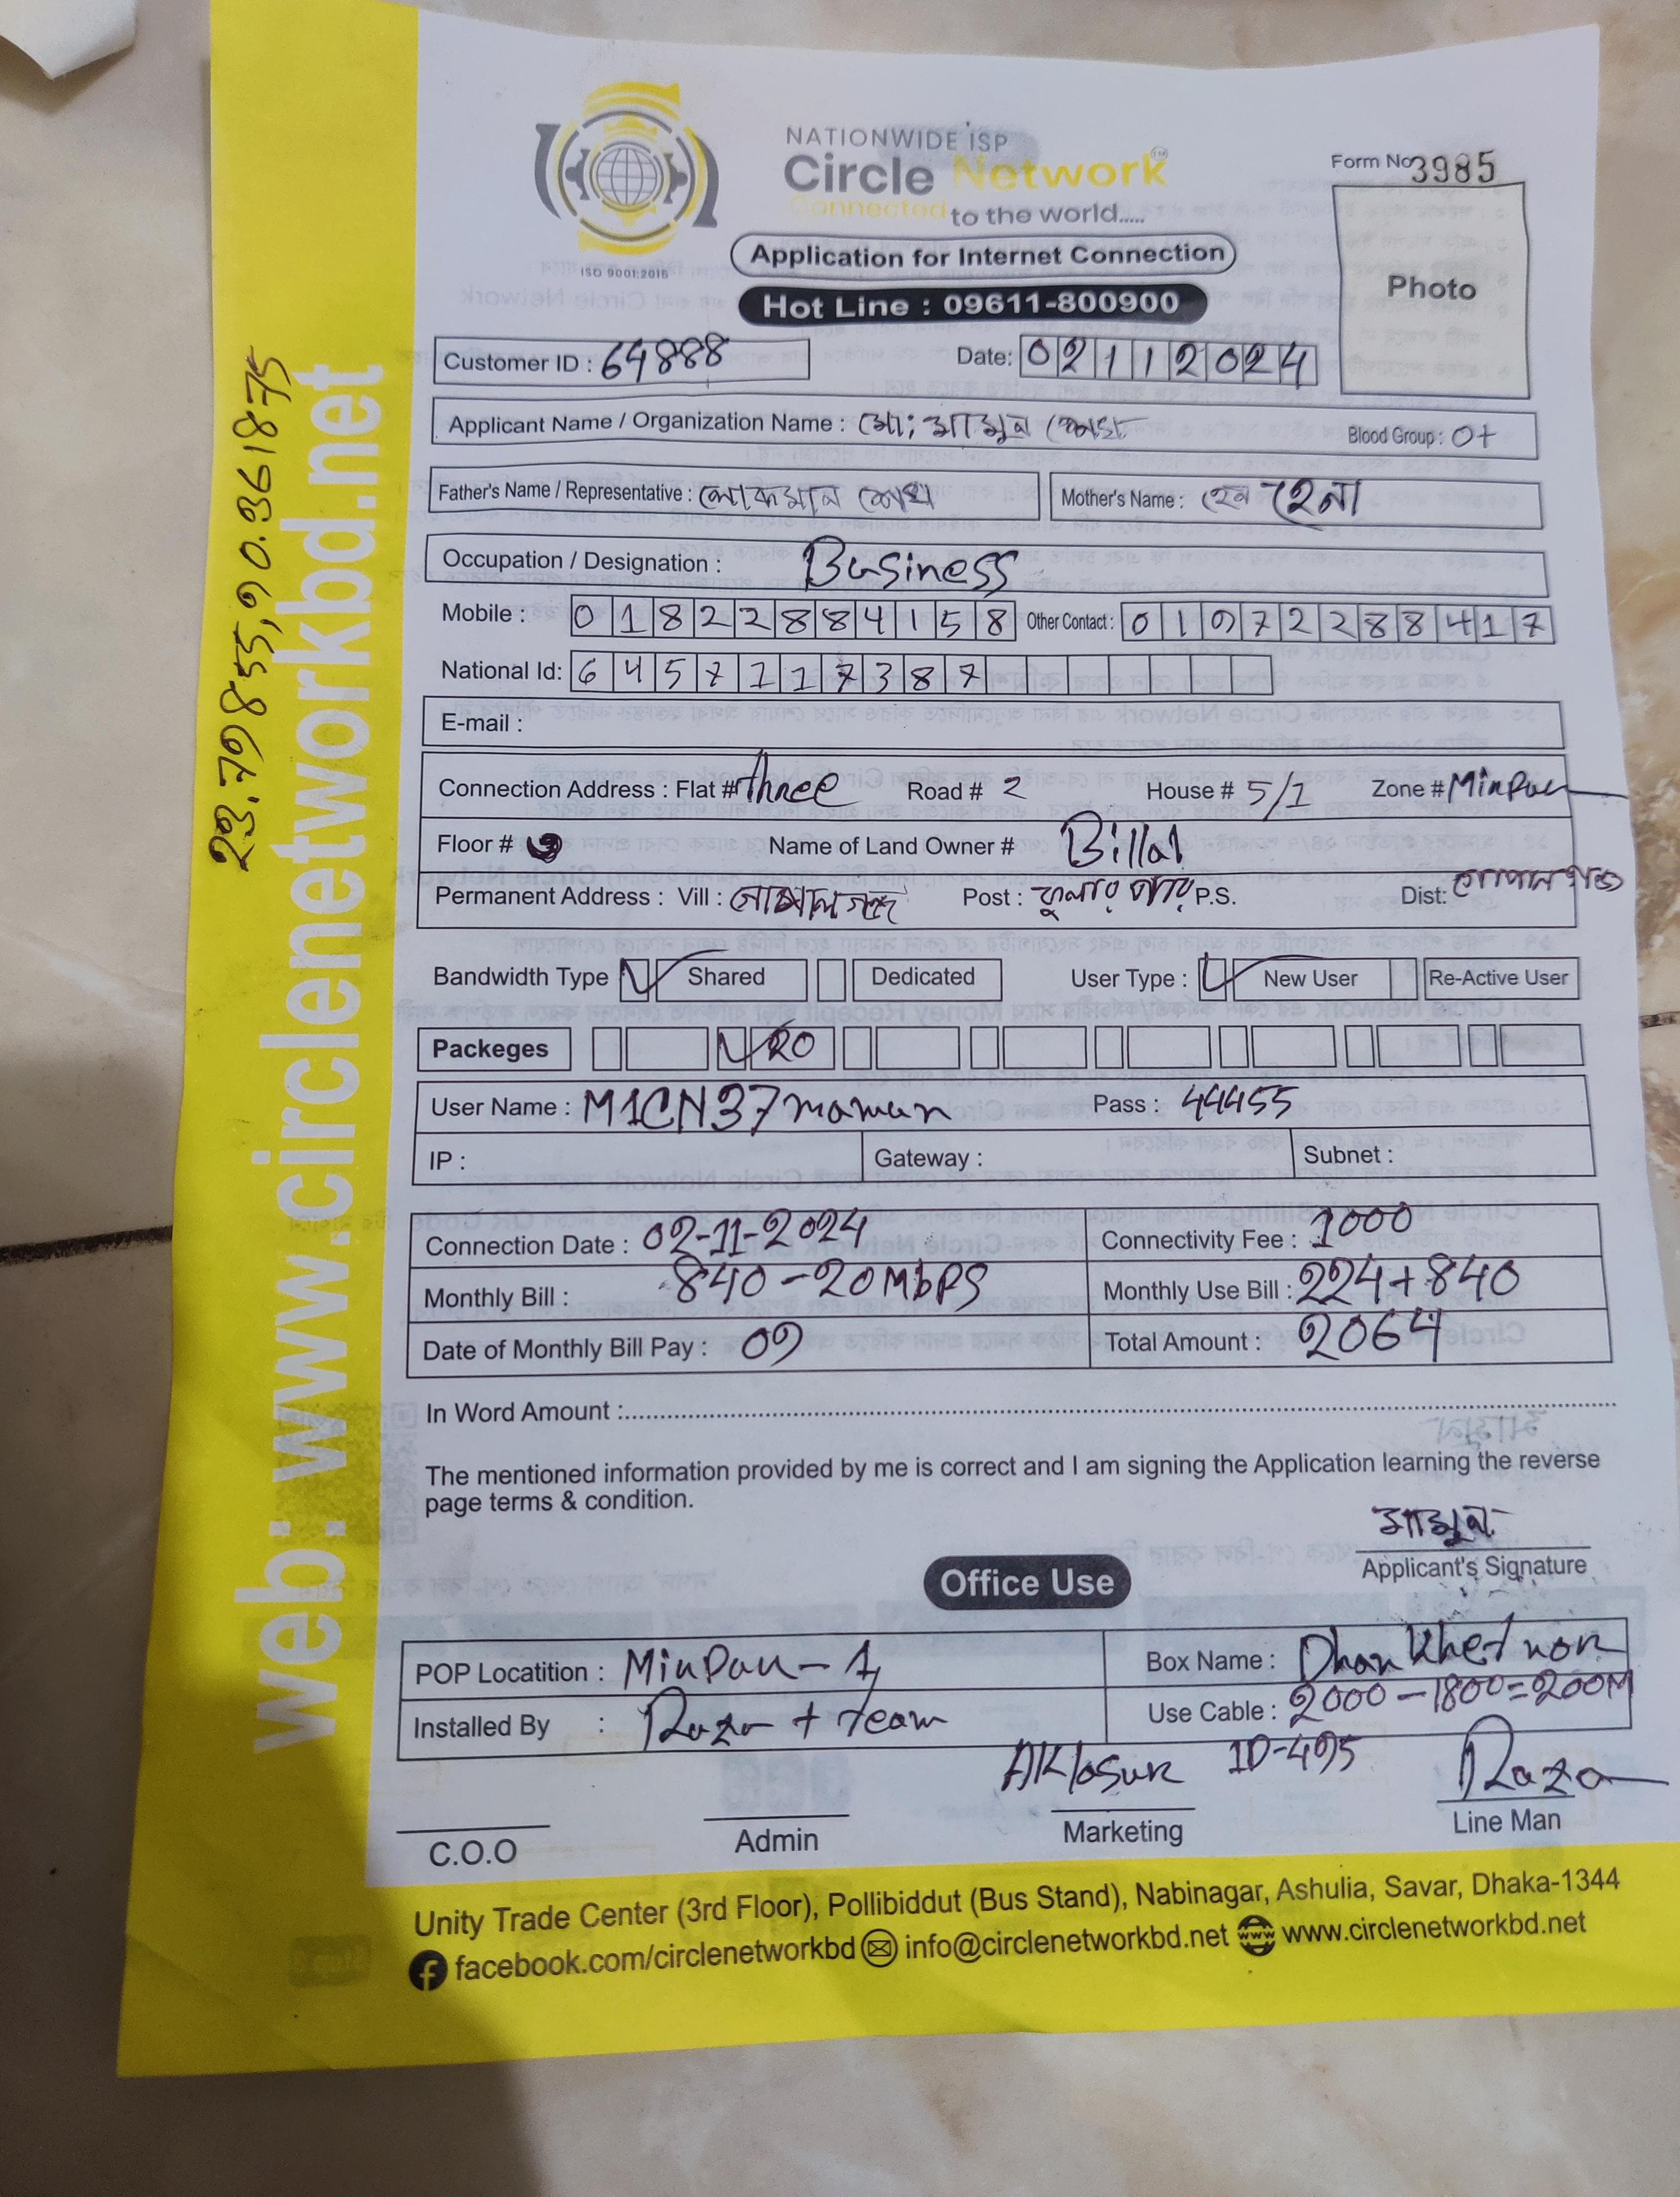 NATIONWIDE ISP
Circle Network™
Connected to the world.....
ISO 9001:2015
Form No 3985
Photo
Application for Internet Connection
Hot Line : 09611-800900
Customer ID : 64888 Date: 02112024
Applicant Name / Organization Name : মো: মামুন শেখ Blood Group : O+
Father's Name / Representative : লোকমান শেখ Mother's Name : হেনা
Occupation / Designation : Business
Mobile : 01822884158 Other Contact : 01972288417
National Id: 6457117387
E-mail :
Connection Address : Flat # three Road # 2 House # 5/1 Zone # Minpur
Floor # Name of Land Owner # Billal
Permanent Address : Vill : Post : P.S. Dist: গোপালগঞ্জ
Bandwidth Type Shared Dedicated User Type : New User Re-Active User
Packeges 20
User Name : M1CN37mamun Pass : 44455
IP : Gateway : Subnet :
Connection Date : 02-11-2024 Connectivity Fee : 1000
Monthly Bill : 840-20MbPS Monthly Use Bill : 224+840
Date of Monthly Bill Pay : 09 Total Amount : 2064
In Word Amount :
The mentioned information provided by me is correct and I am signing the Application learning the reverse
page terms & condition.
মামুন
Applicant's Signature
Office Use
POP Locatition : MinPur-1 Box Name : Dhan khet
Installed By : Raza + team Use Cable : 2000-1800=200M
ID-495 Raza
C.O.O Admin Marketing Line Man
Unity Trade Center (3rd Floor), Pollibiddut (Bus Stand), Nabinagar, Ashulia, Savar, Dhaka-1344
facebook.com/circlenetworkbd info@circlenetworkbd.net www.circlenetworkbd.net
web: www.circlenetworkbd.net
23.79855,90.361875